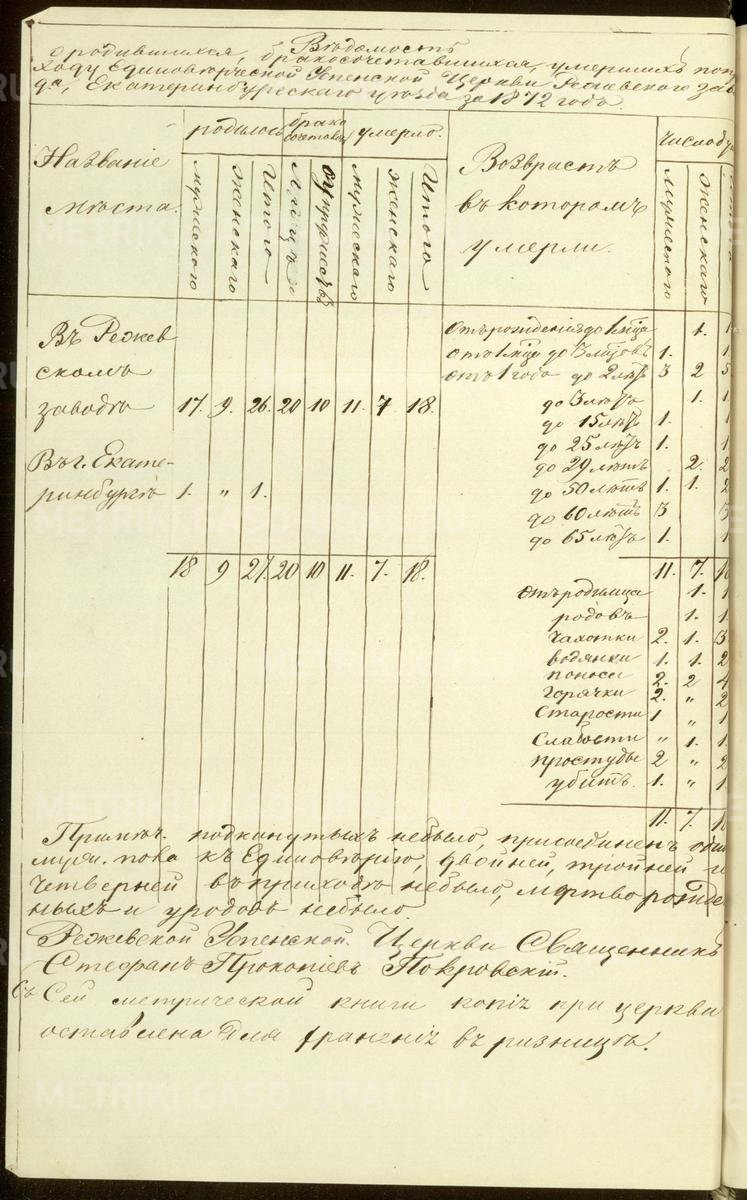 Вѣдомость
о родившихся, бракосочетавшихся, умершихъ по при
ходу Единовѣрческой Успенской Церкви Режевского заво
да, Екатеринбургскаго уѣзда за 1872 годъ.
Названіе мѣста.
родилось
брако сочетавш.
умерло.
Возврастъ въ которомъ умерли.
Число
мужескаго
женскаго
Итого
Лицъ
супружествъ
мужескаго
женскаго
Итого
Мужескаго
Женскаго
Въ Режев
скомъ
заводѣ 17. 9. 26. 20 10 11. 7 18.
Въ г. Екате-
ринбургѣ 1. „ 1.
18 9 27. 20 10 11. 7. 18.
Отъ рожденія до 1 мца 1. 1
отъ 1 мца до 3 мцовъ 1. 1
отъ 1 года до 2 лѣтъ 3 2 5
до 3 лѣтъ 1. 1
до 15 лѣтъ 1. 1
до 25 лѣтъ 1. 1
до 29 лѣтъ 2. 2
до 50 лѣтъ 1. 1. 2
до 60 лѣтъ 3 3
до 65 лѣтъ 1. 1
11. 7. 1
Отъ родимца 1. 1
родовъ 1. 1
Чахотки 2. 1. 3
водянки 1. 1. 2
поноса 2. 2 4
Горячки 2. „ 2
Старости 1 „ 1
Слабости „ 1. 1
простуды 2 „ 2
убитъ. 1. „ 1
11. 7. 1
Примѣч. подкинутыхъ небыло, присоединенъ одинъ
муж. пола къ Единовѣрію, двойней, тройней и
Четверней въ приходѣ небыло, мертво рожде
нныхъ и уродовъ небыло.
Режевской Успенской Церкви Священникъ
Стефанъ Прокопіевъ Покровскій.
Съ Сей метрической книги копія при церкви
оставлена для храненія въ ризницѣ.